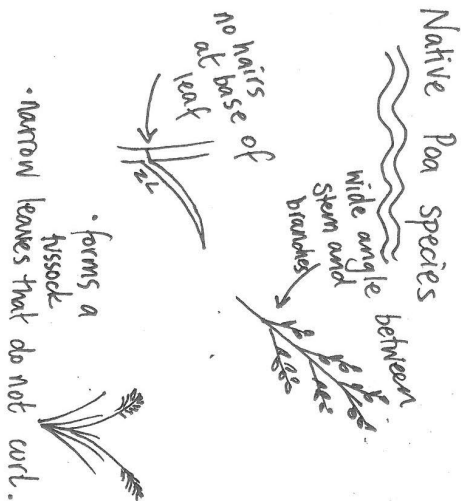 Native Poa species
wide angle between
stem and
branches
no hairs
at base of
leaf
• forms a
tussock
• narrow leaves that do not curl.